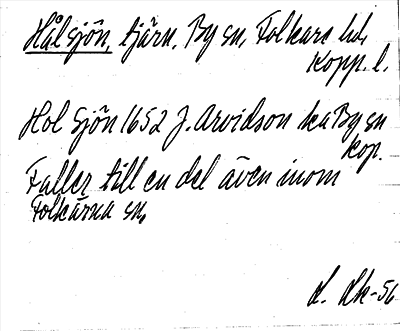 Hålsjön, tjärn, By sn, Folkare hd,
Kopp. l.
Hol Sjön 1652 J. Arvidson ka By sn
Kop.
Faller till en del även inom
Folkärna sn,